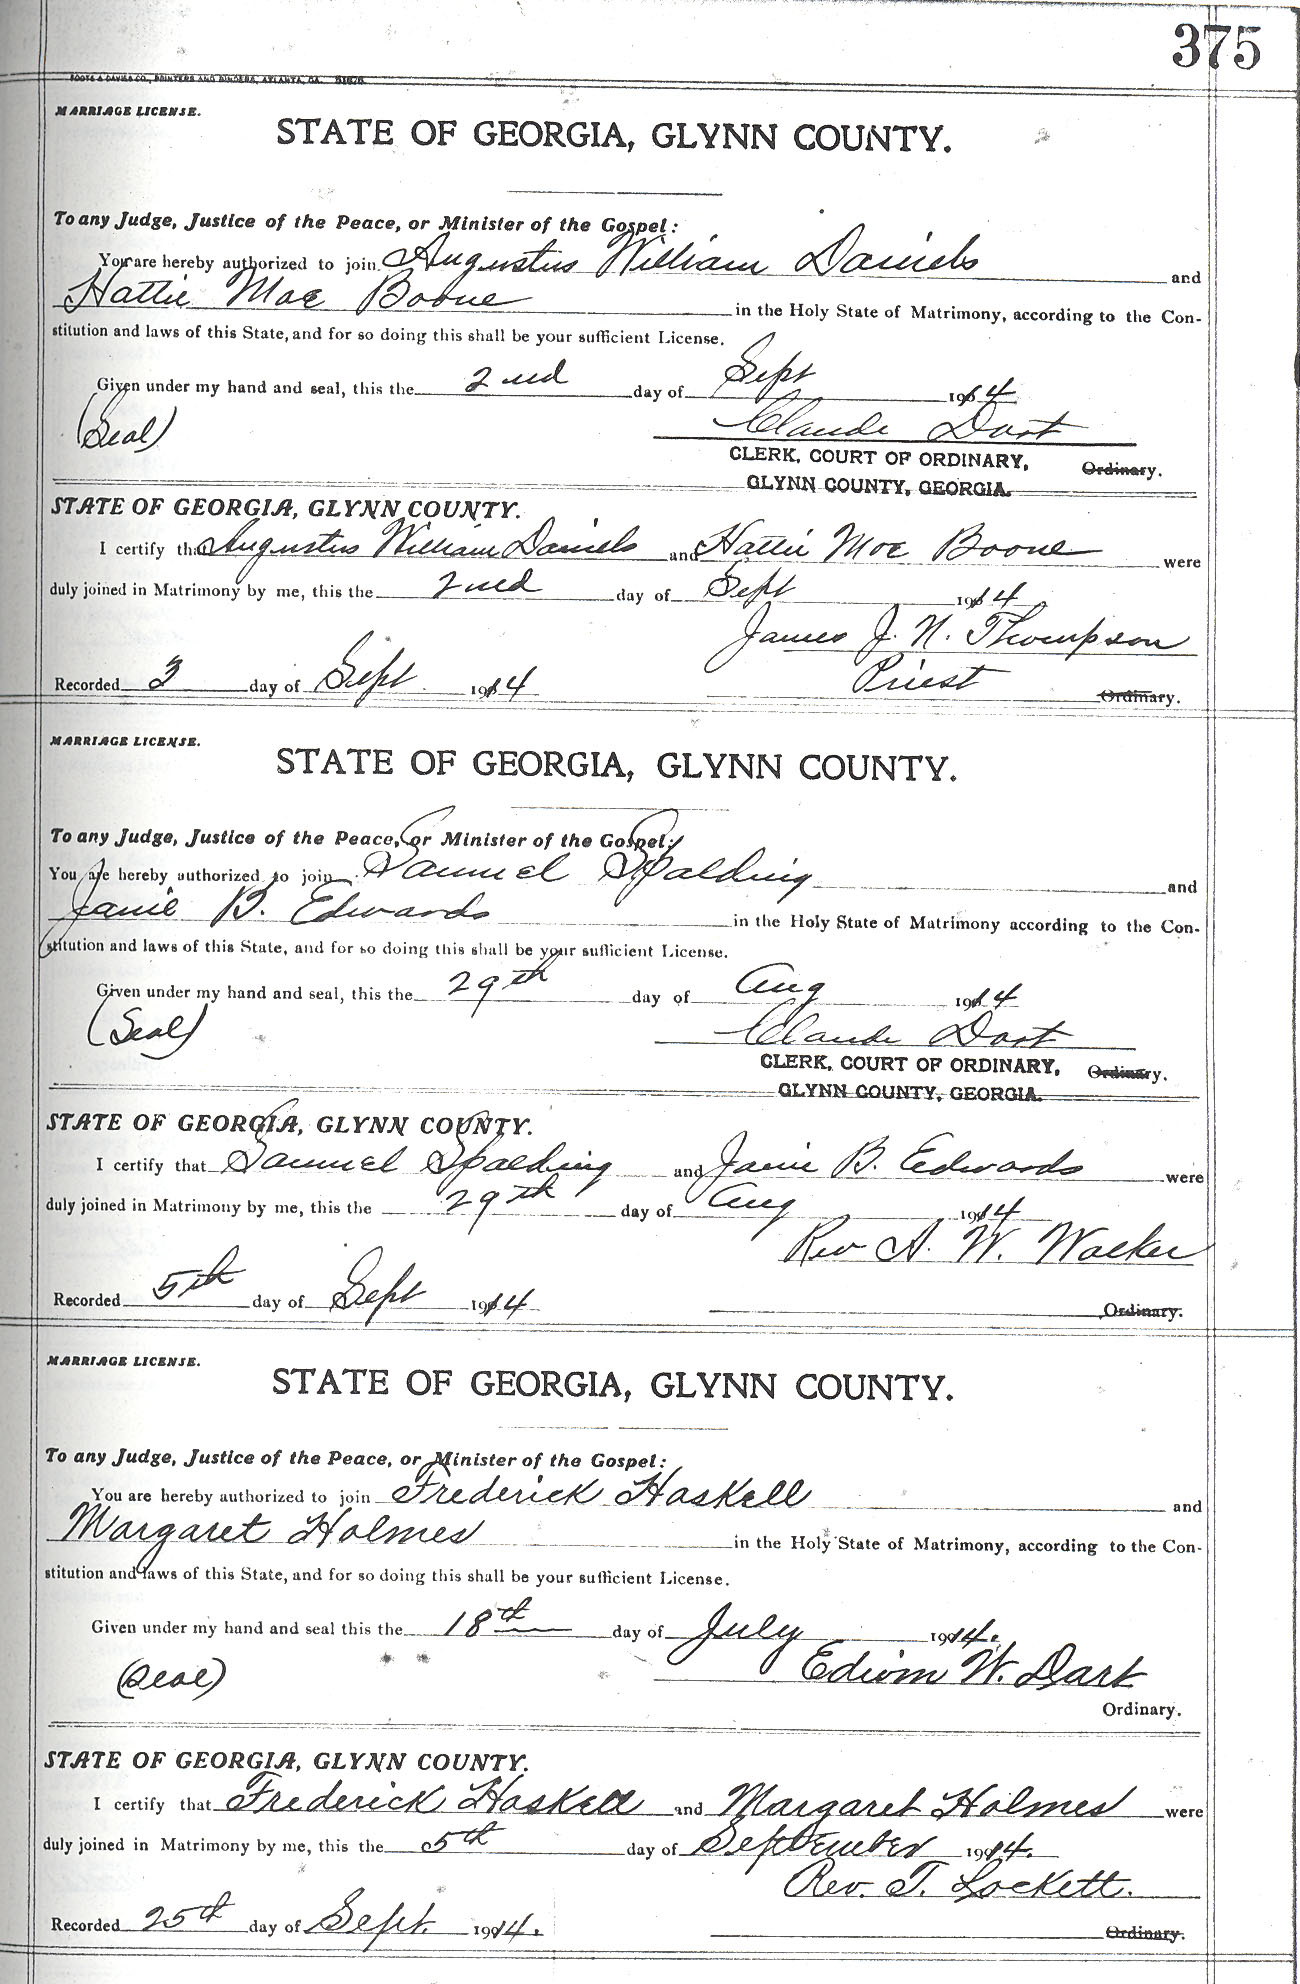 375
FOOTE & DAVIES CO., PRINTERS AND BINDERS, ATLANTA, GA.
MARRIAGE LICENSE.
STATE OF GEORGIA, GLYNN COUNTY.
To any Judge, Justice of the Peace, or Minister of the Gospel:
You are hereby authorized to join Augustus William Daniels and
Hattie Mae Boone in the Holy State of Matrimony, according to the Con-
stitution and laws of this State, and for so doing this shall be your sufficient License.
Given under my hand and seal, this the 2nd day of Sept 1914
(Seal) Claude Dart
CLERK, COURT OF ORDINARY, Ordinary.
GLYNN COUNTY, GEORGIA.
STATE OF GEORGIA, GLYNN COUNTY.
I certify that Augustus William Daniels and Hattie Mae Boone were
duly joined in Matrimony by me, this the 2nd day of Sept 1914
James J. N. Thompson
Recorded 3 day of Sept 1914 Priest Ordinary.
MARRIAGE LICENSE.
STATE OF GEORGIA, GLYNN COUNTY.
To any Judge, Justice of the Peace, or Minister of the Gospel:
You are hereby authorized to join Samuel Spalding and
Janie B. Edwards in the Holy State of Matrimony according to the Con-
stitution and laws of this State, and for so doing this shall be your sufficient License.
Given under my hand and seal, this the 29th day of Aug 1914
(Seal) Claude Dart
CLERK, COURT OF ORDINARY, Ordinary.
GLYNN COUNTY, GEORGIA.
STATE OF GEORGIA, GLYNN COUNTY.
I certify that Samuel Spalding and Janie B. Edwards were
duly joined in Matrimony by me, this the 29th day of Aug 1914
Rev A. W. Walker
Recorded 5th day of Sept 1914 Ordinary.
MARRIAGE LICENSE.
STATE OF GEORGIA, GLYNN COUNTY.
To any Judge, Justice of the Peace, or Minister of the Gospel:
You are hereby authorized to join Frederick Haskell and
Margaret Holmes in the Holy State of Matrimony, according to the Con-
stitution and laws of this State, and for so doing this shall be your sufficient License.
Given under my hand and seal this the 18th day of July 1914.
(Seal) Edwin W. Dart
Ordinary.
STATE OF GEORGIA, GLYNN COUNTY.
I certify that Frederick Haskell and Margaret Holmes were
duly joined in Matrimony by me, this the 5th day of September 1914.
Rev. T. Lockett.
Recorded 25th day of Sept. 1914. Ordinary.